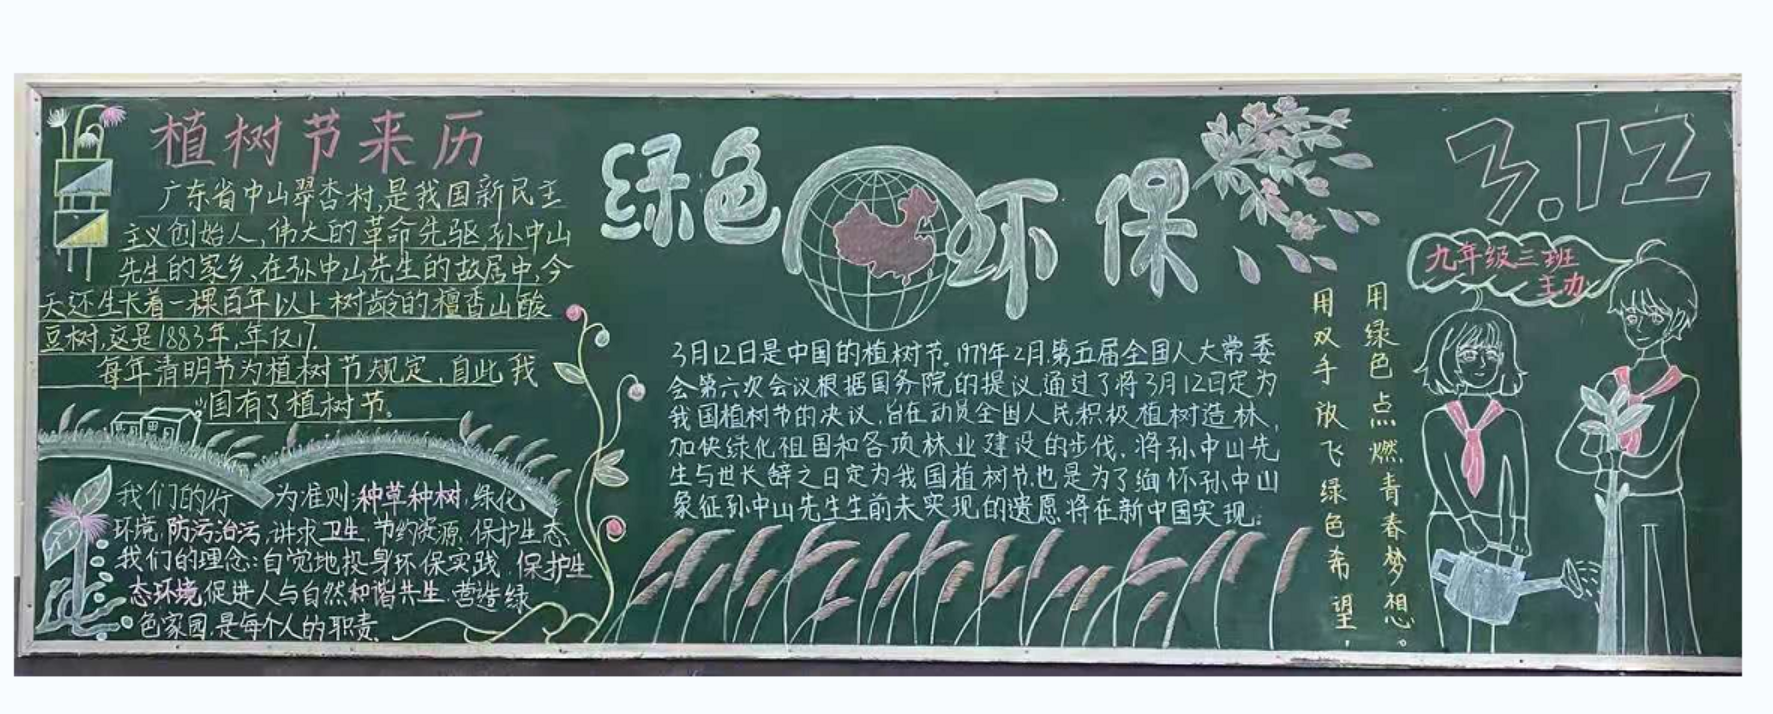 植树节来历
广东省中山翠杏村,是我国新民主
主义创始人,伟大的革命先驱,孙中山
先生的家乡,在孙中山先生的故居中,今
天还生长着一棵百年以上树龄的檀香山酸
豆树,这是1883年,年仅17.
每年清明节为植树节规定,自此我
国有了植树节。
我们的行 为准则:种草种树,绿化
环境,防污治污,讲求卫生,节约资源,保护生态
我们的理念:自觉地投身环保实践,保护生
态环境,促进人与自然和谐共生,营造绿
色家园,是每个人的职责
绿色环保
3月12日是中国的植树节。1979年2月,第五届全国人大常委
会第六次会议根据国务院的提议,通过了将3月12日定为
我国植树节的决议,旨在动员全国人民积极植树造林,
加快绿化祖国和各项林业建设的步伐,将孙中山先
生与世长辞之日定为我国植树节,也是为了缅怀孙中山
象征孙中山先生生前未实现的遗愿将在新中国实现。
3.12
九年级三班
主办
用双手放飞绿色希望,
用绿色点燃青春梦想。